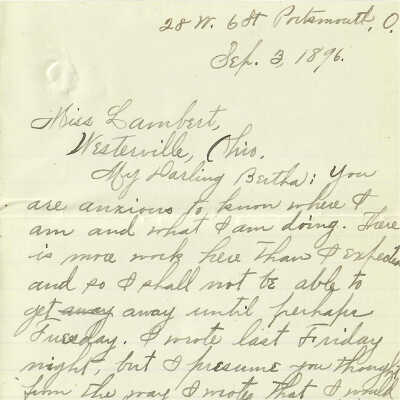 28 W. 6 St Portsmouth, O.
Sep. 3, 1896.
Miss Lambert,
Westerville, Ohio.
My Darling Bertha: You
are anxious to know where I
am and what I am doing. There
is more work here than I expected
and so I shall not be able to
get away away until perhaps
Tuesday. I wrote last Friday
night, but I presume you thought
from the way I wrote that I would